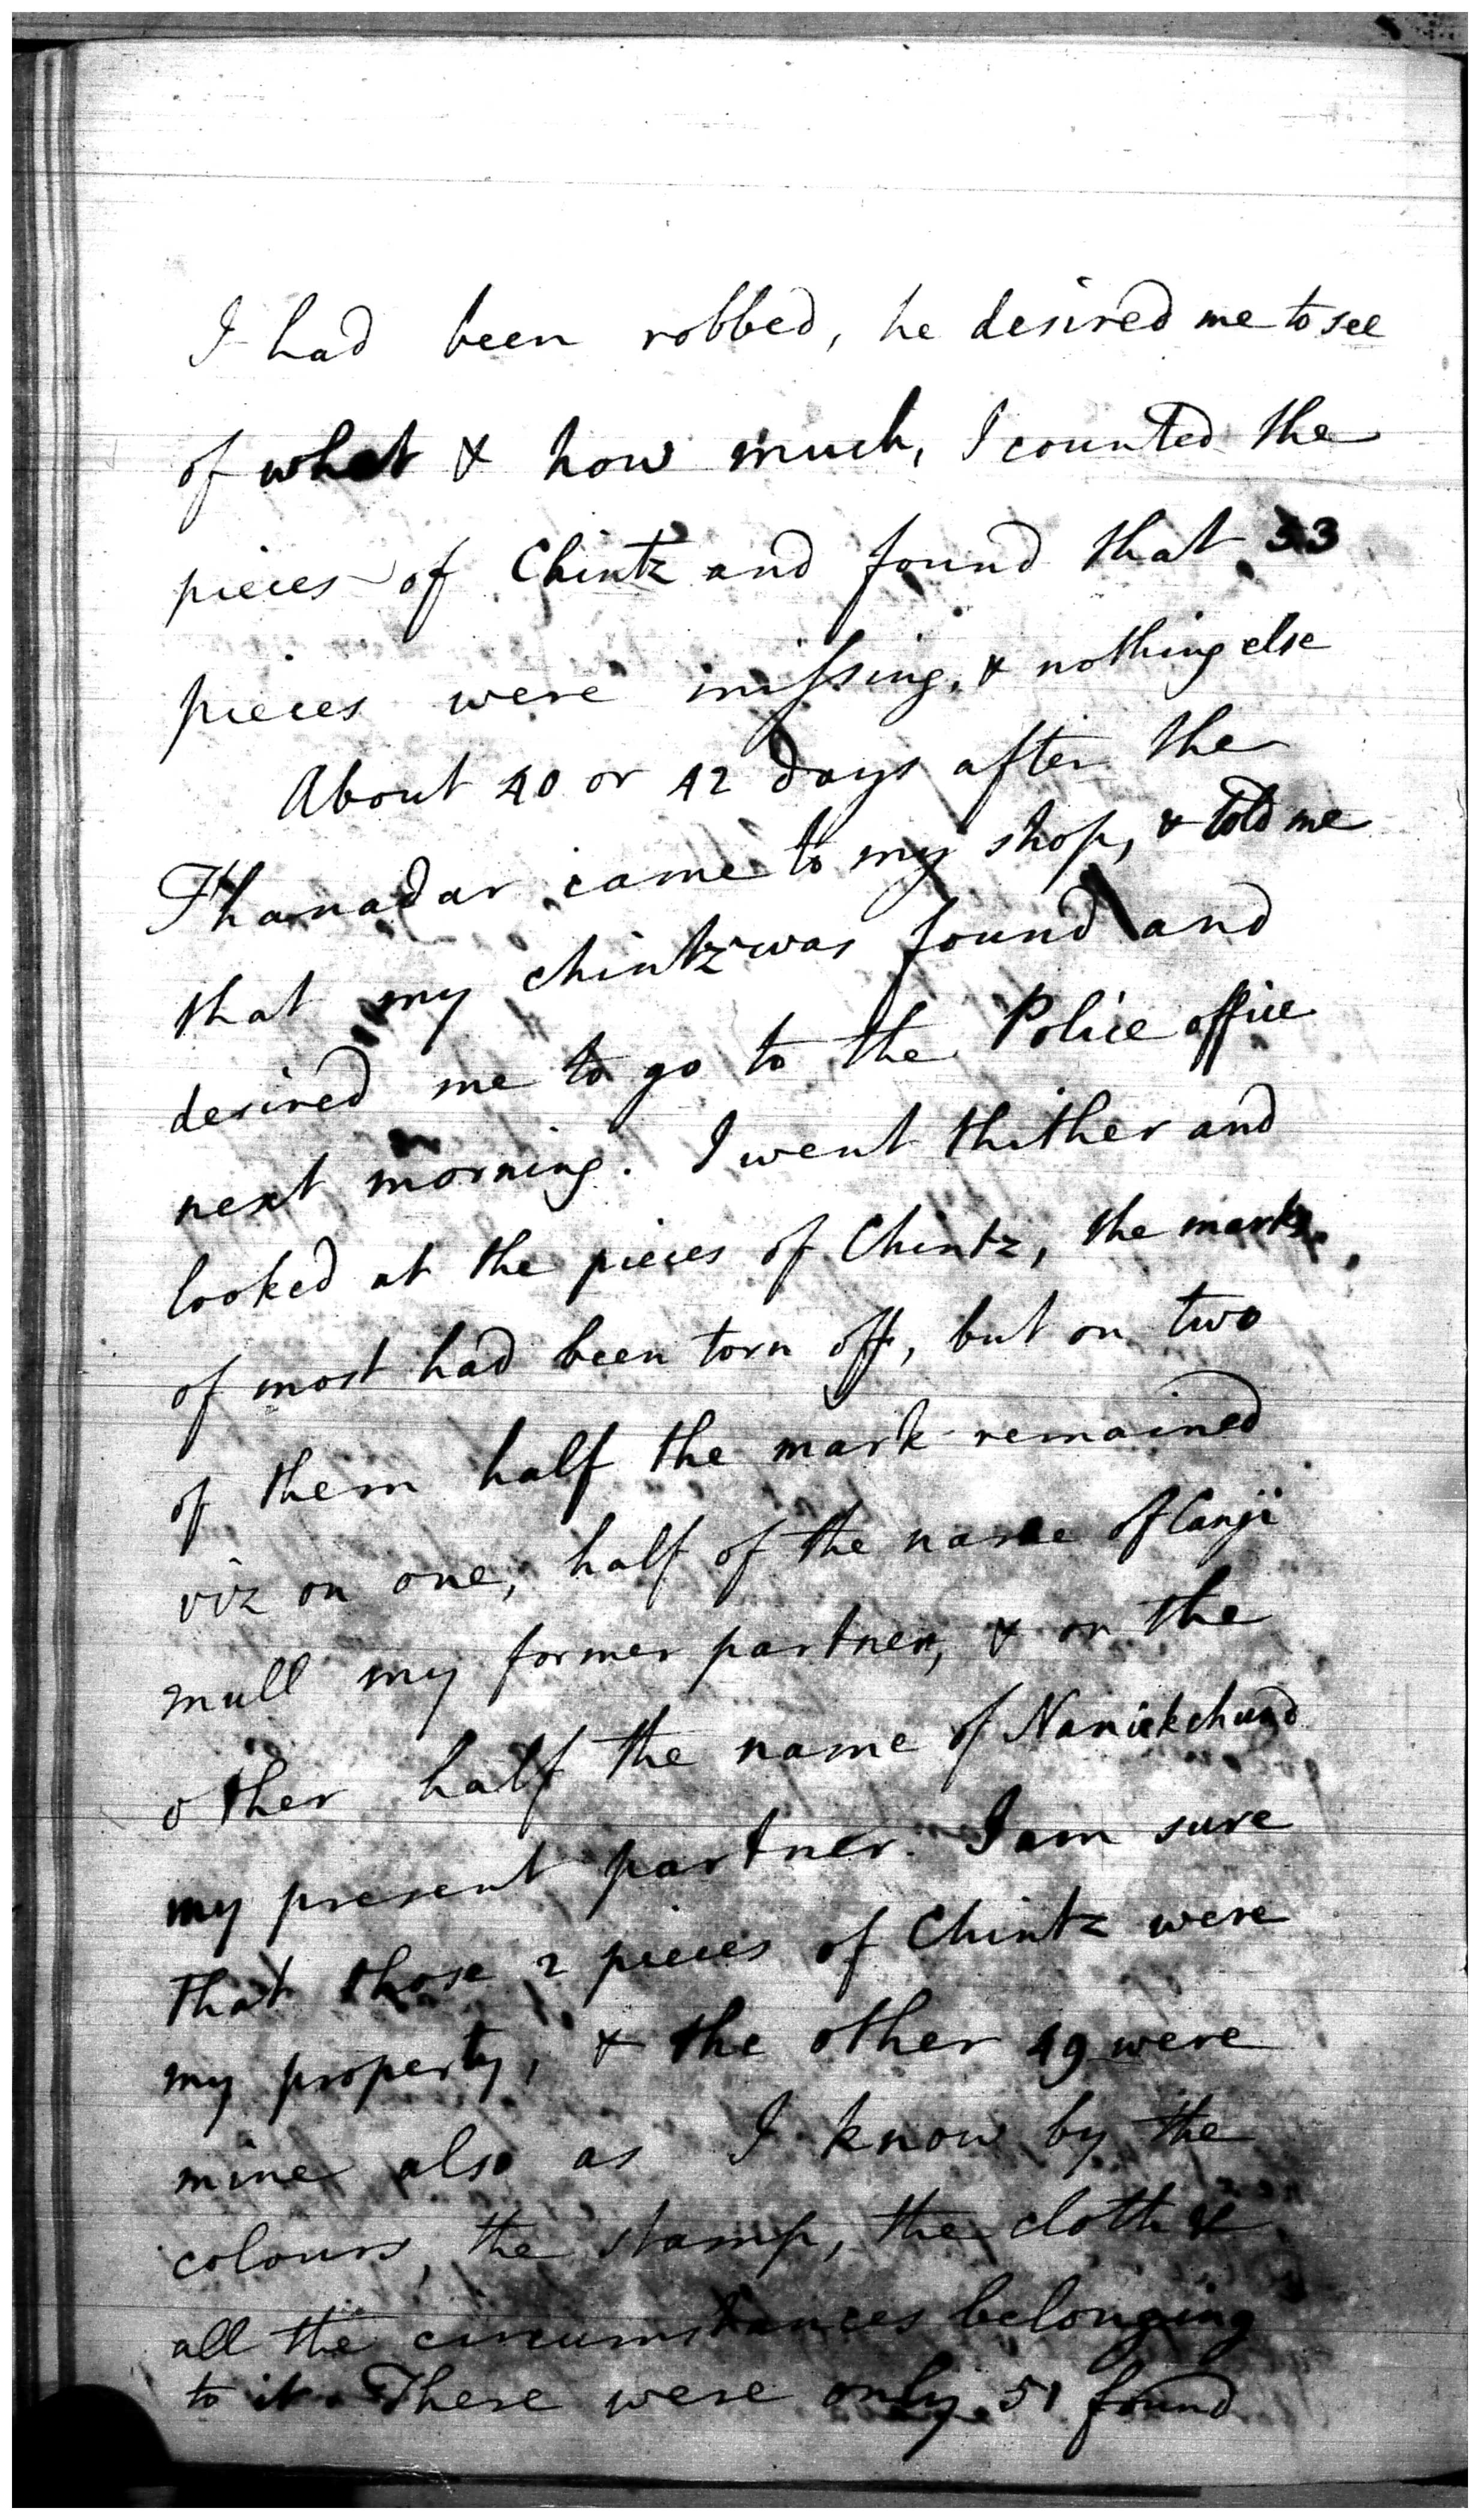 I had been robbed, he desired me to see
of what & how much, I counted the
pieces of Chintz and found that 53
pieces were missing, & nothing else
About 40 or 42 days after the
Thanadar came to my shop, & told me
that my chintz was found and
desired me to go to the Police office
next morning. I went thither and
looked at the pieces of Chintz, the marks,
of most had been torn off, but on two
of them half the mark remained
viz on one, half of the name of Canji
mull my former partner, & on the
other half the name of Nanickchund
my present partner. I am sure
that those 2 pieces of Chintz were
my property, & the other 49 were
mine also as I know by the
colours, the stamp, the cloth &
all the circumstances belonging
to it. There were only 51 found